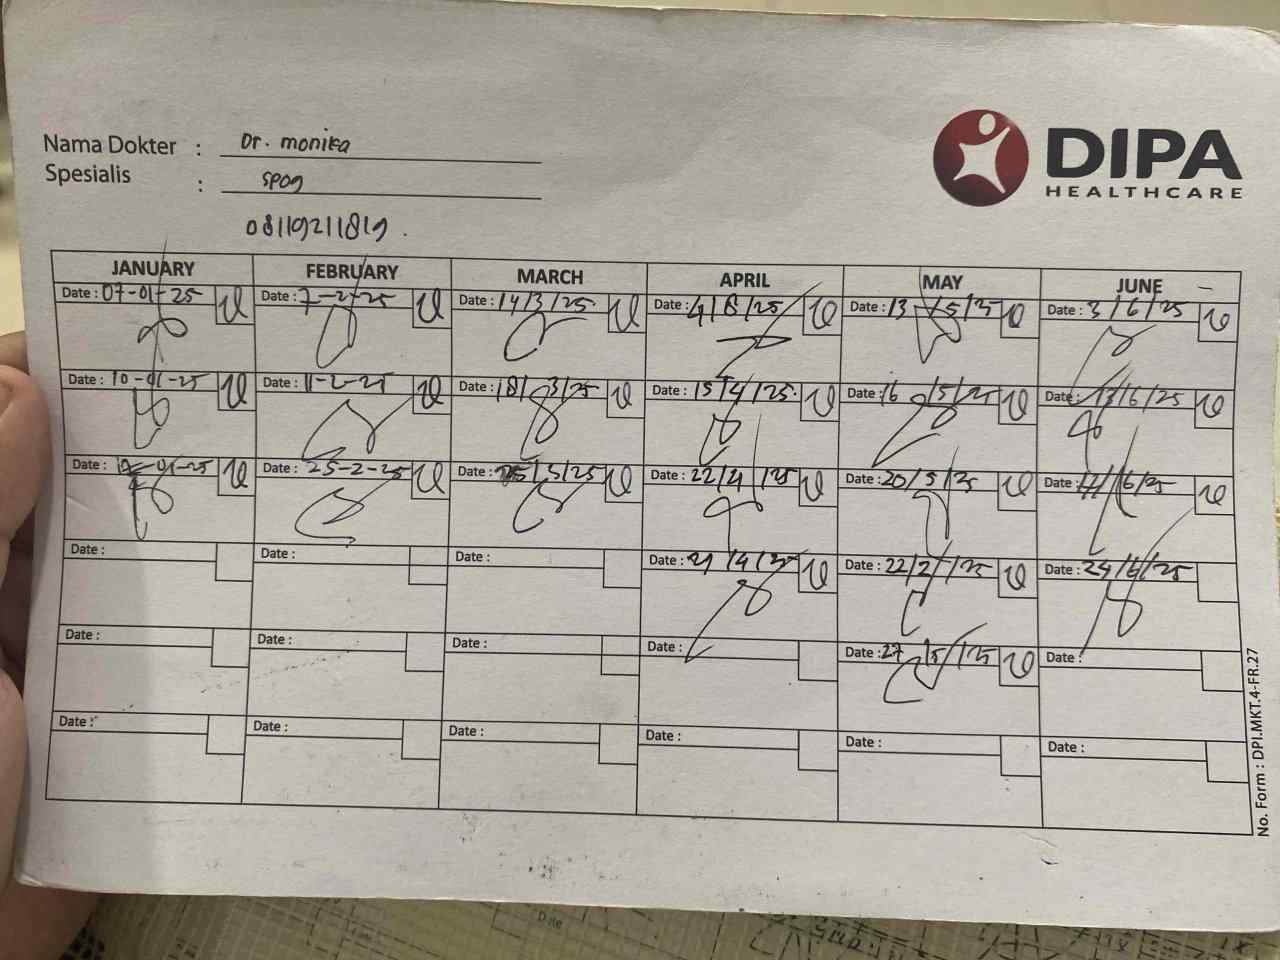 Nama Dokter : Dr. monika
Spesialis : spog
08119211819.
DIPA
HEALTHCARE
JANUARY FEBRUARY MARCH APRIL MAY JUNE
Date : 07-01-25 Date : 7-2-25 Date : 14/3/25 Date : 4/ /25 Date : 13/5/25 Date : 3/6/25
Date : 10-01-25 Date : 11-2-25 Date : 18/3/25 Date : 15/4/25 Date : 16/5/25 Date : /6/25
Date : -01-25 Date : 25-2-25 Date : 25/3/25 Date : 22/4/25 Date : 20/5/25 Date : /6/25
Date : Date : Date : Date : /4/25 Date : 22/ /25 Date : 24/6/25
Date : Date : Date : Date : Date : 27/5/25 Date :
Date : Date : Date : Date : Date : Date :
No. Form : DPI.MKT.4-FR.27